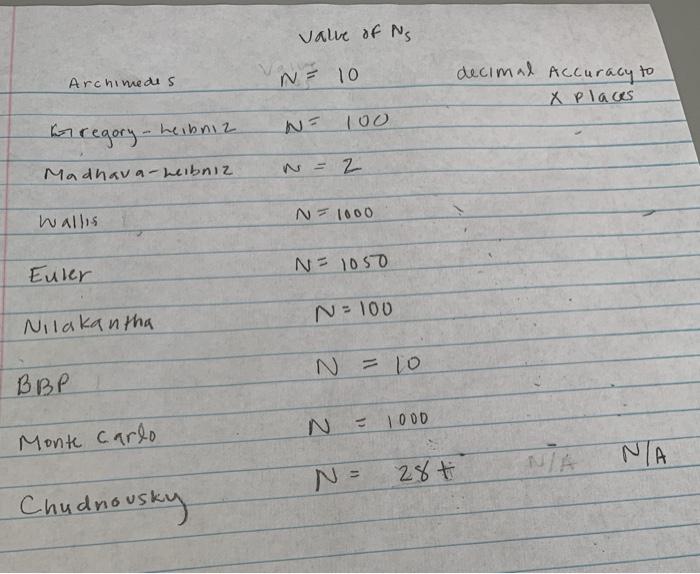 Value of Ns
Archimedes N = 10 decimal Accuracy to
X places
Gregory-Leibniz N = 100
Madhava-Leibniz N = 2
Wallis N = 1000
Euler N = 1050
Nilakantha N = 100
BBP N = 10
Monte Carlo N = 1000
Chudnovsky N = 28+ N/A N/A